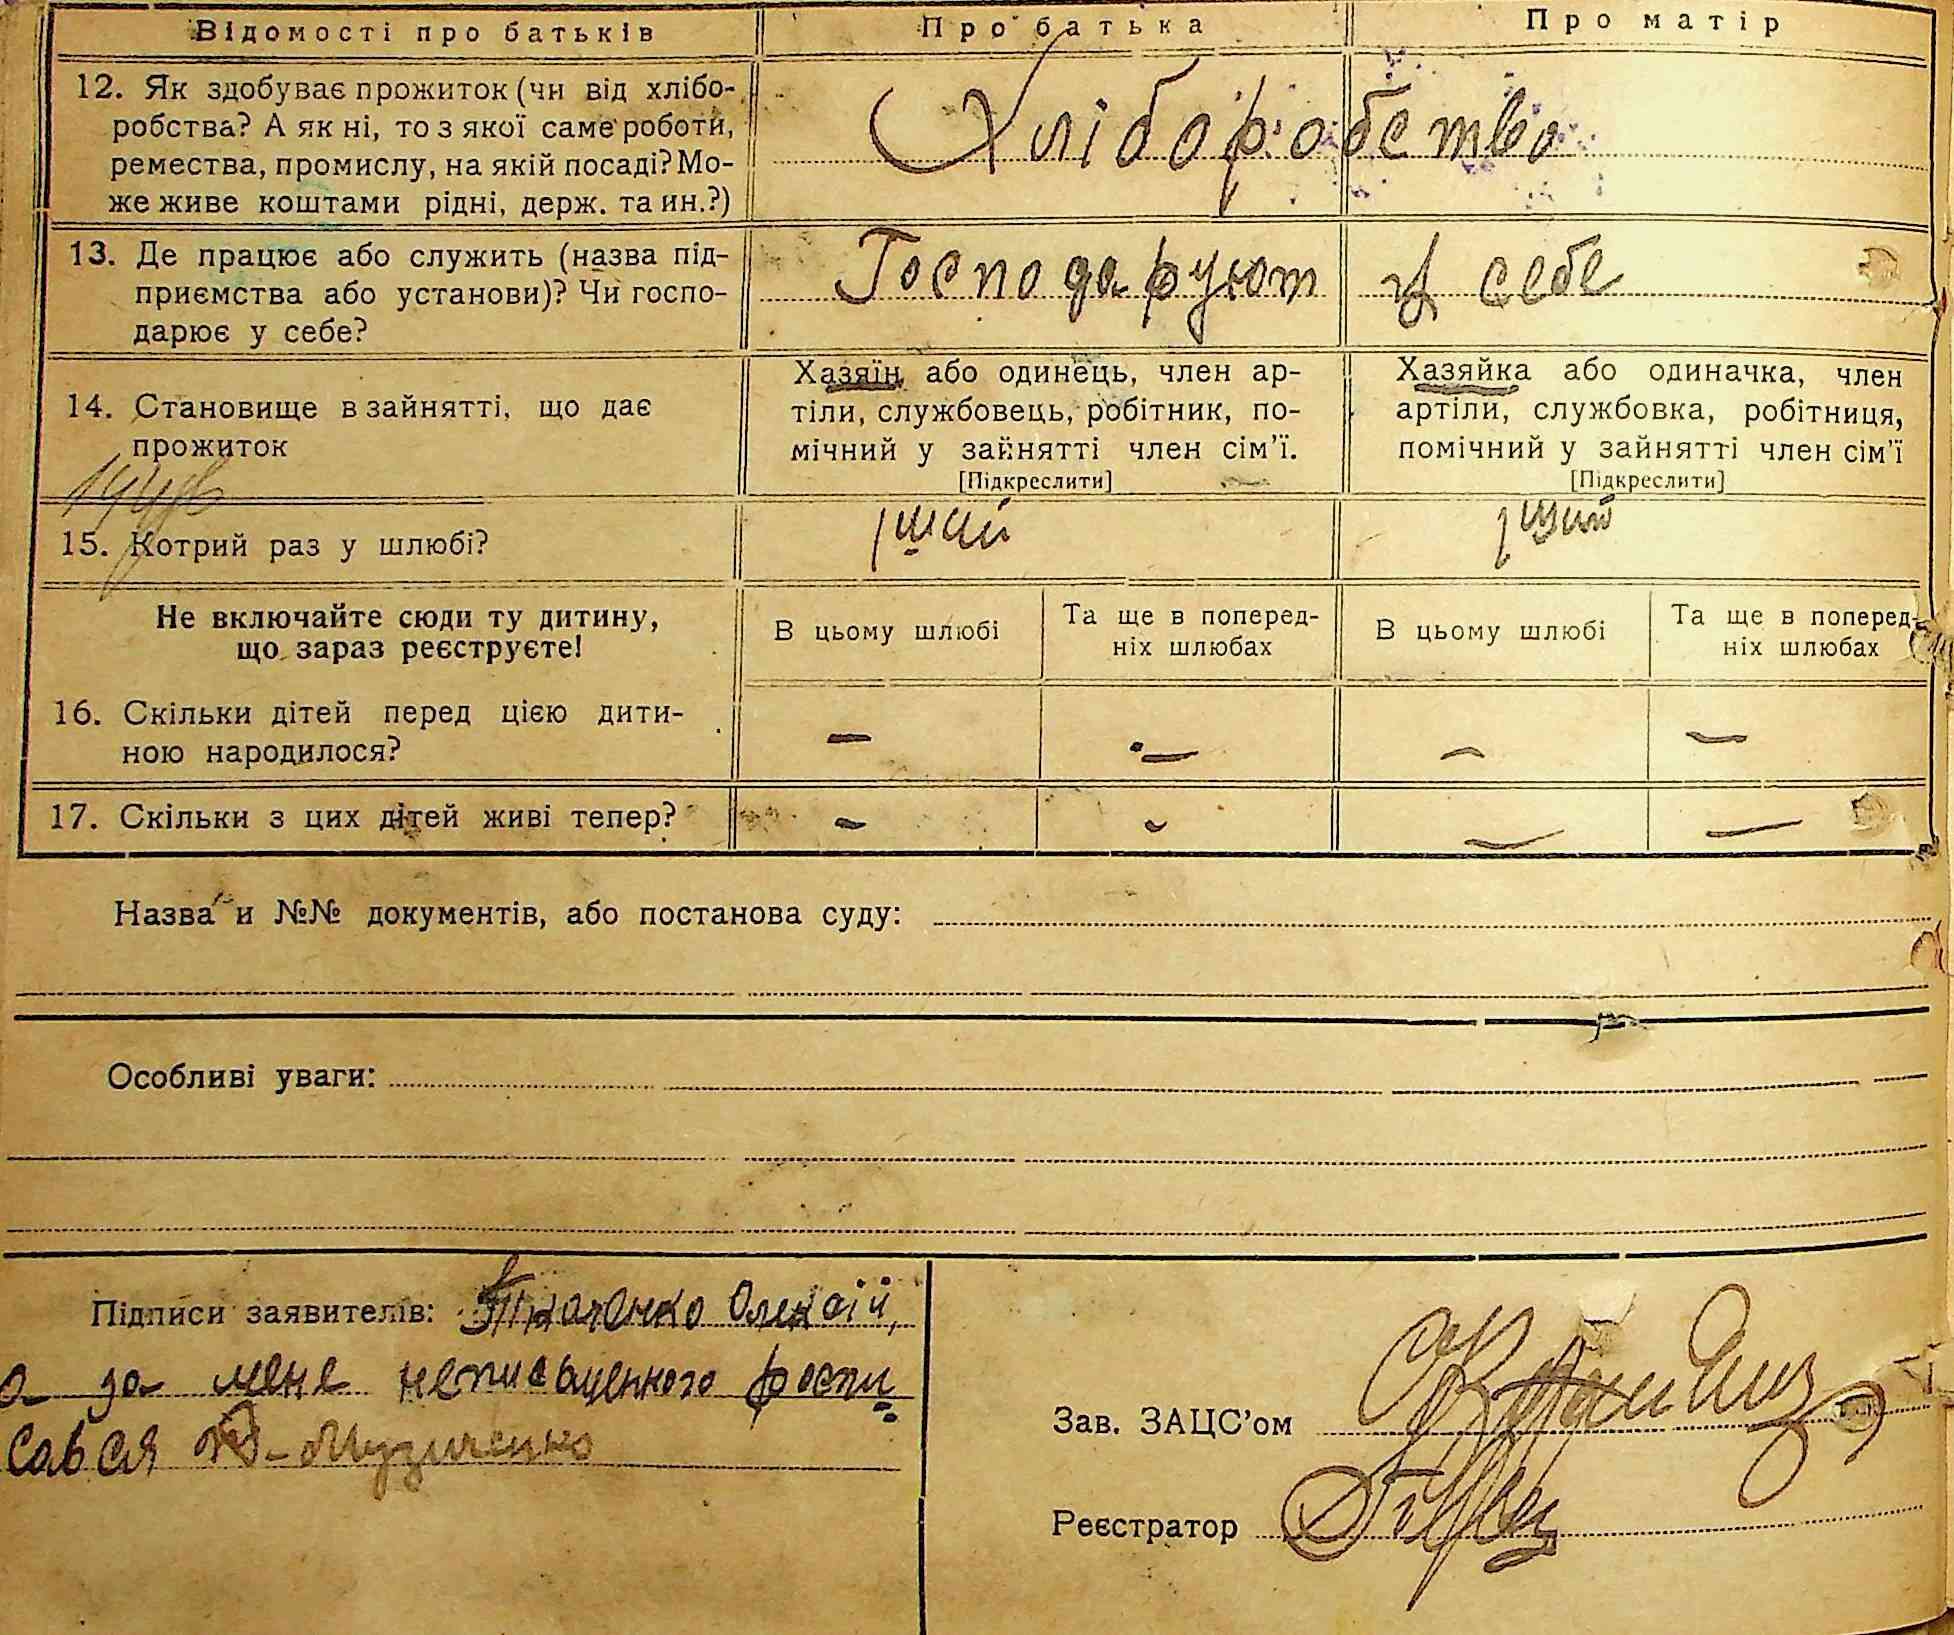 Відомості про батьків Про батька Про матір
12. Як здобуває прожиток (чи від хлібо-
робства? А як ні, то з якої саме роботи,
ремества, промислу, на якій посаді? Мо-
же живе коштами рідні, держ. та ин.?)
Хліборобство
13. Де працює або служить (назва під-
приємства або установи)? Чи госпо-
дарює у себе?
Господарують у себе
14. Становище в зайнятті, що дає
прожиток
Хазяїн або одинець, член ар-
тіли, службовець, робітник, по-
мічний у зайнятті член сім'ї.
[Підкреслити]
Хазяйка або одиначка, член
артіли, службовка, робітниця,
помічний у зайнятті член сім'ї
[Підкреслити]
15. Котрий раз у шлюбі?
Не включайте сюди ту дитину,
що зараз реєструєте!
В цьому шлюбі
Та ще в поперед-
ніх шлюбах
В цьому шлюбі
Та ще в поперед-
ніх шлюбах
16. Скільки дітей перед цією дити-
ною народилося?
— — — —
17. Скільки з цих дітей живі тепер?
— — — —
Назва и №№ документів, або постанова суду:
Особливі уваги:
Підписи заявителів: Ткаченко Олексій,
а за мене неписьменного роспи
сався Музиченко
Зав. ЗАЦС'ом
Реєстратор